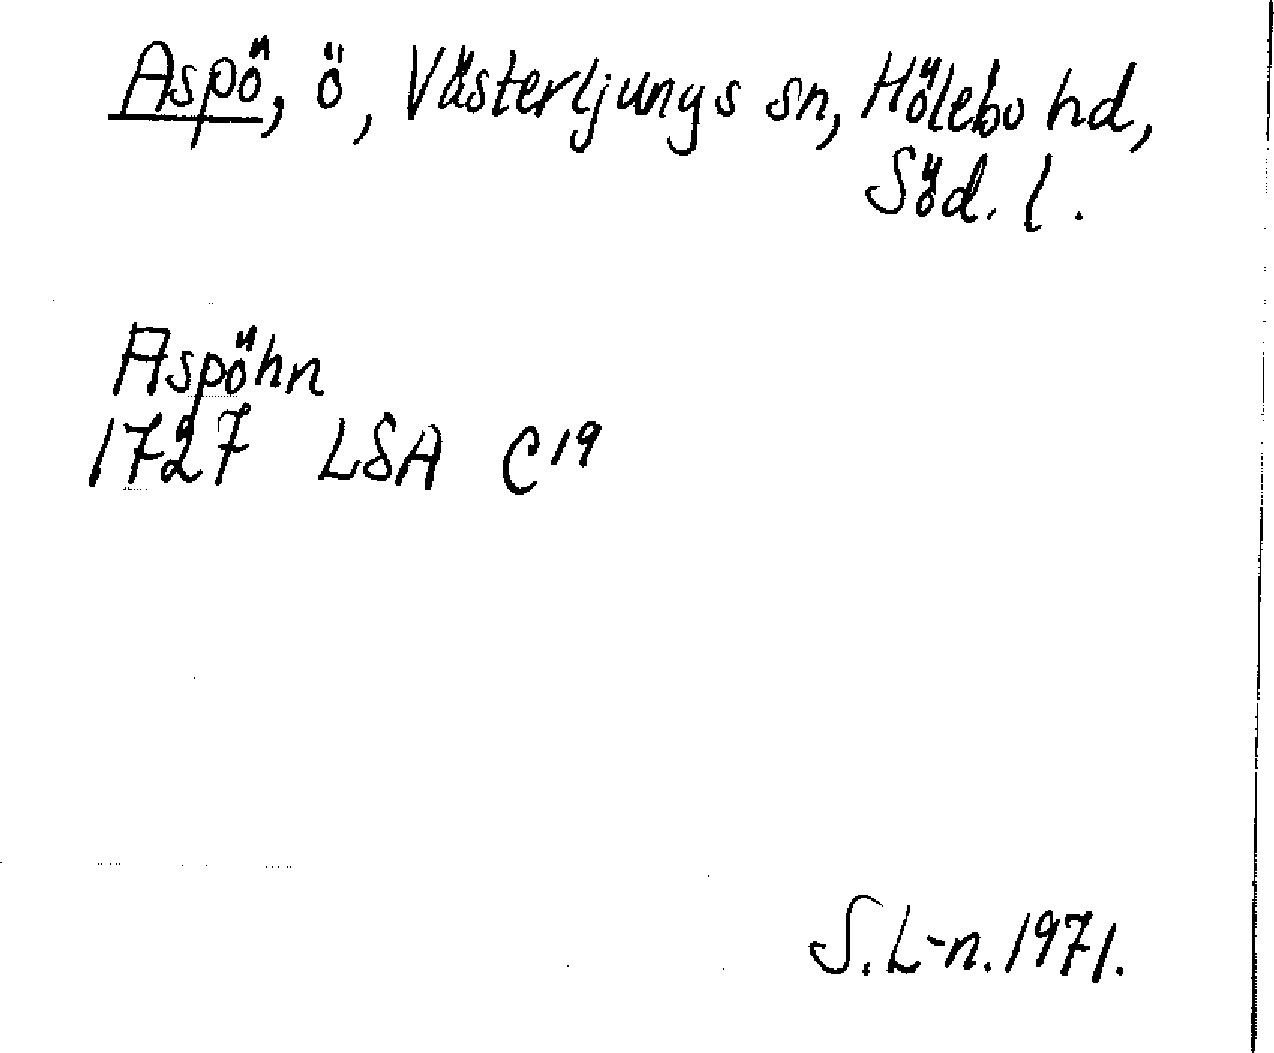 Aspö, ö, Västerljungs sn, Hölebo hd,
Söd. l.
Aspöhn
1727 LSA C19
S. L-n. 1971.